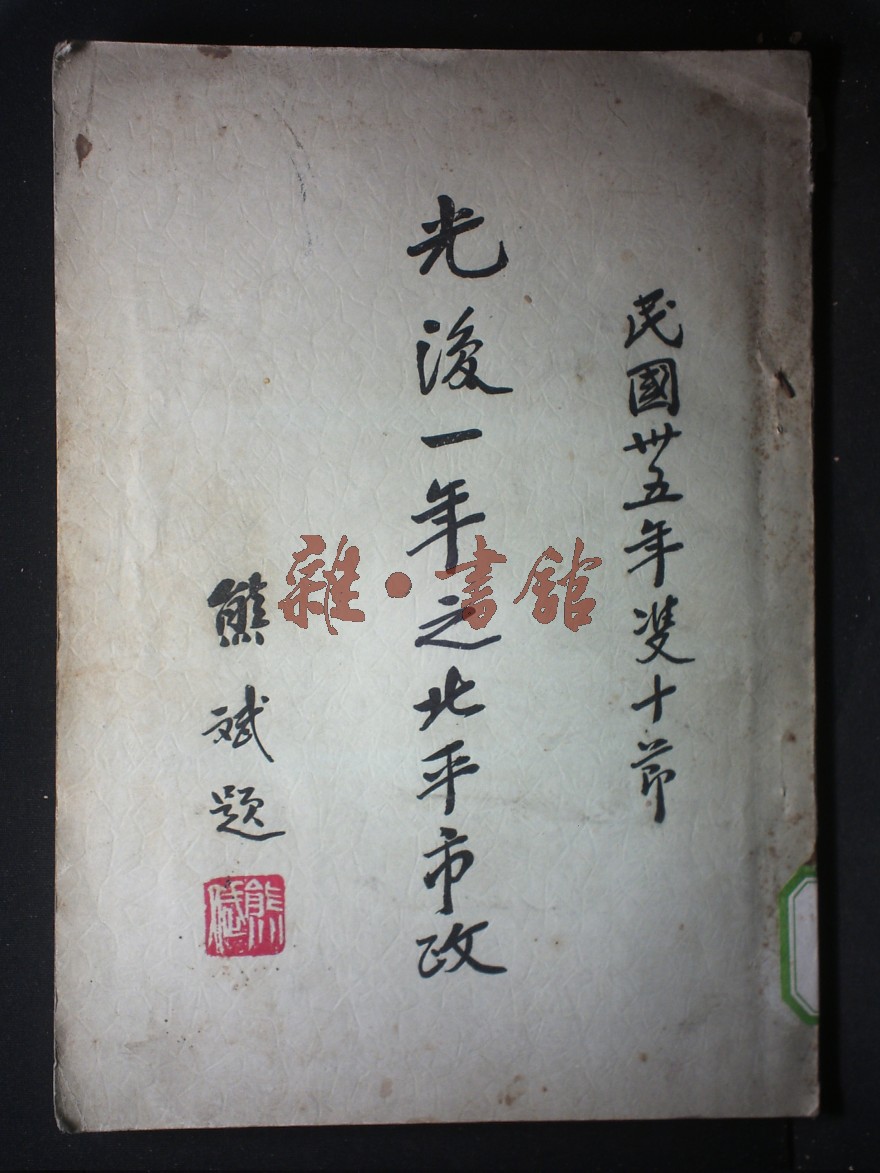 民國卅五年雙十節
光復一年之北平市政
熊斌題
熊斌
雜·書館